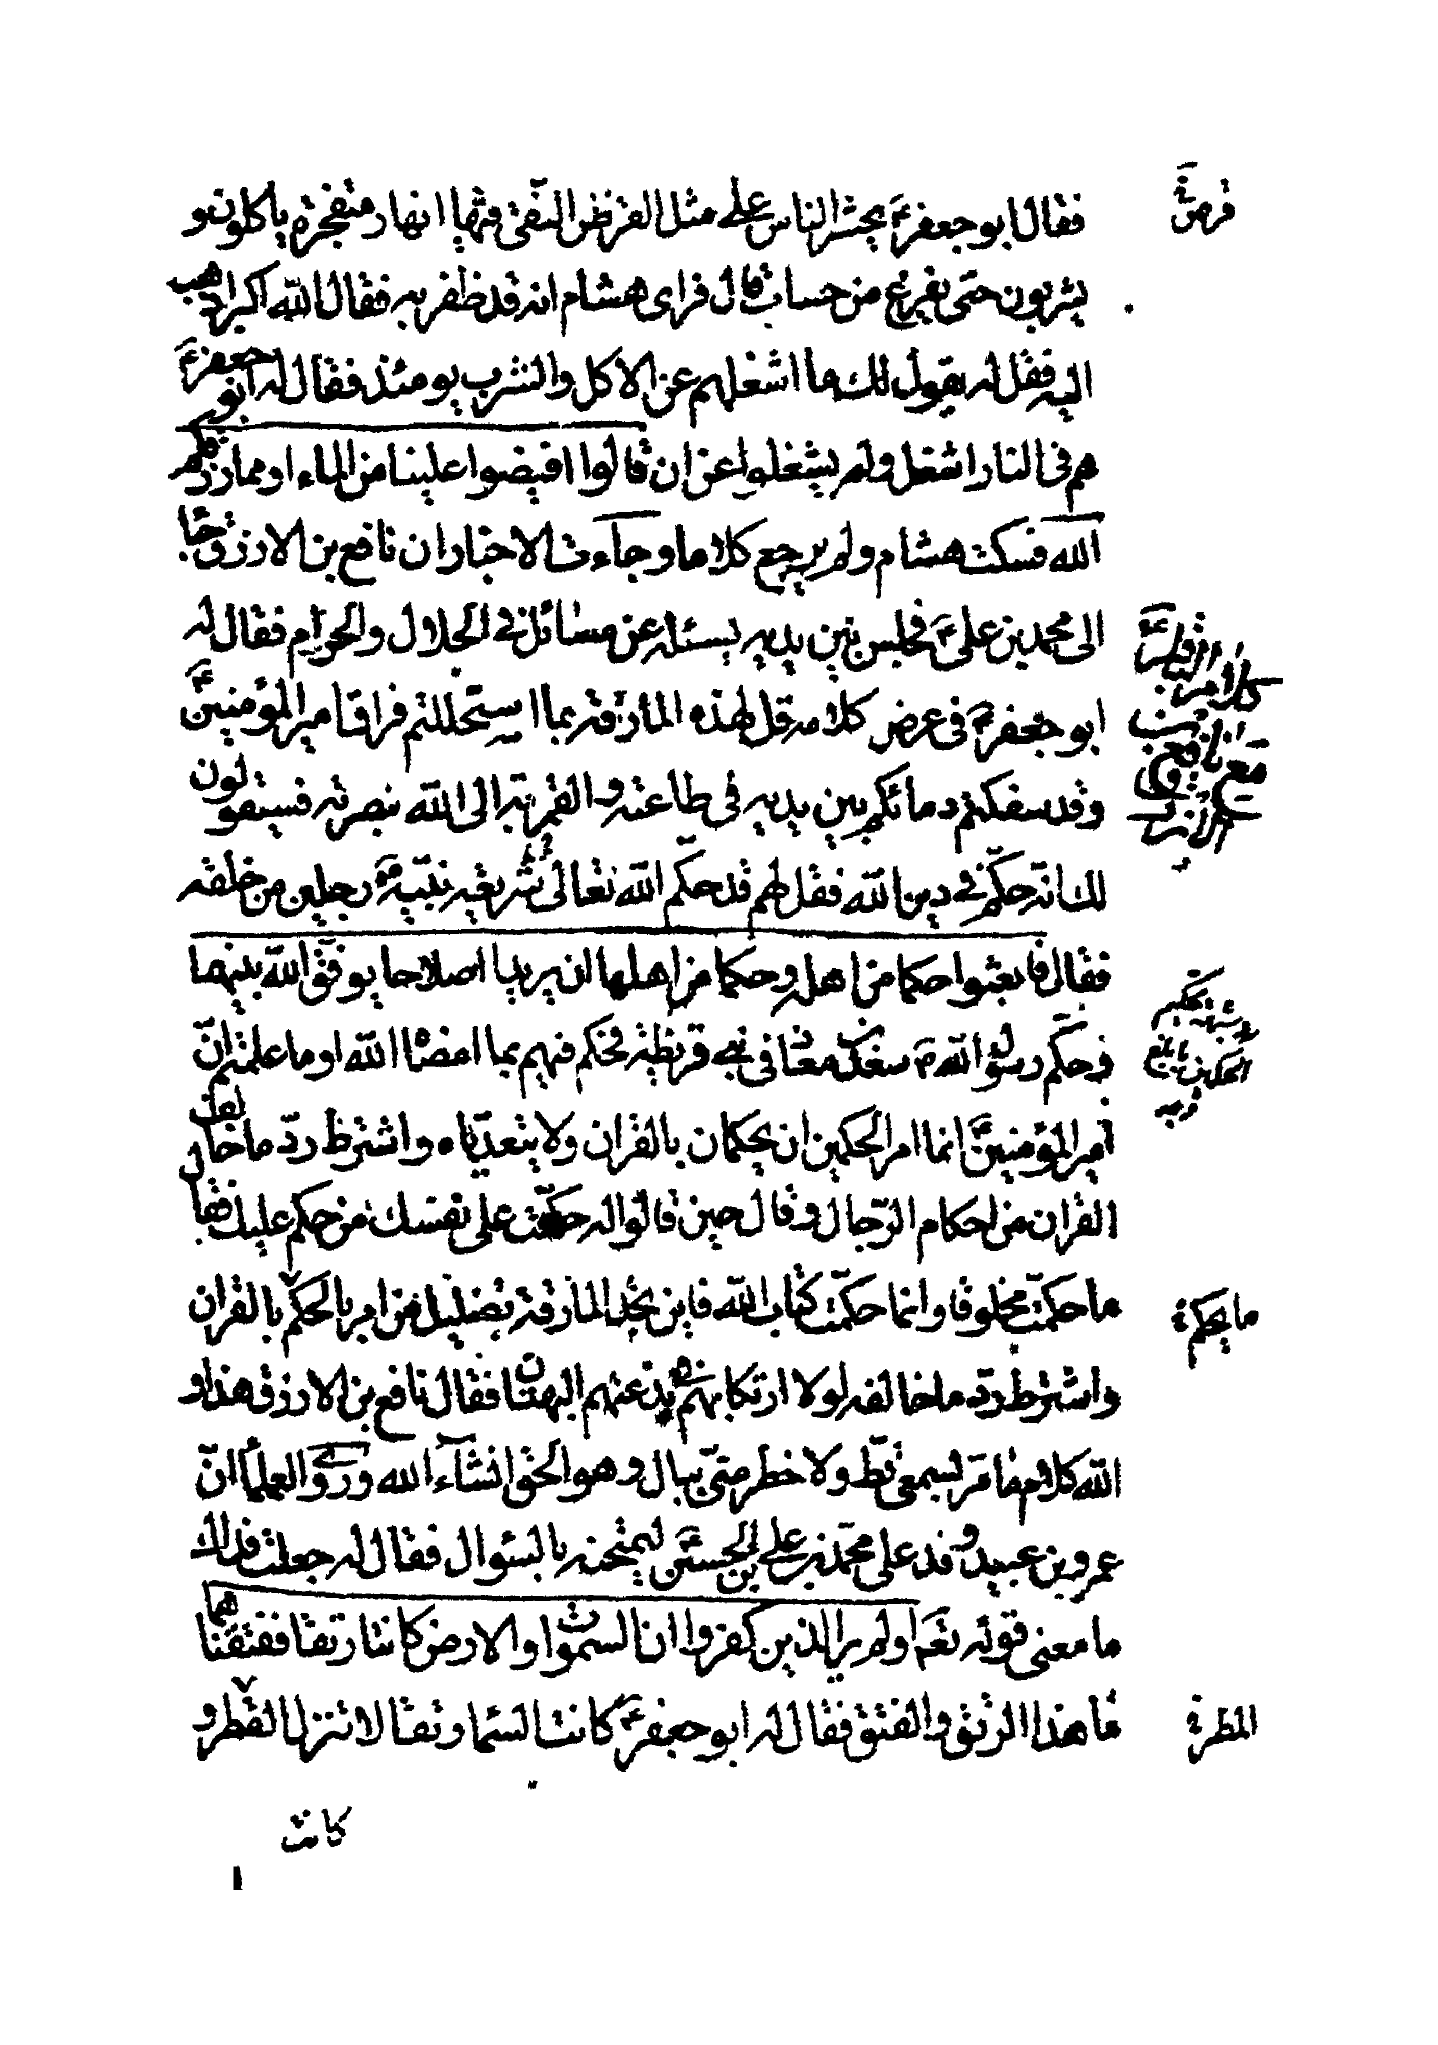 فقال ابو جعفر ع يحشر الناس على مثل القرص النقى فيها انهار متفجره ياكلون و
يشربون حتى يفرغ من حساب قال فراى هشام انه قد ظفر به فقال الله اكبر اذهب
اليه فقل له يقول لك ما اشغلهم عن الاكل والشرب يومئذ فقال له ابو جعفر ع
هم فى النار اشغل ولم يشغلوا عن ان قالوا افيضوا علينا من الماء او مما رزقكم
الله فسكت هشام ولم يرجع كلاما وجاءت الاخبار ان نافع بن الازرق جاء
الى محمد بن على ع فجلس بين يديه يسئله عن مسائل فى الحلال والحرام فقال له
ابو جعفر ع فى عرض كلامه قل لهذه المارقة بما استحللتم فراق امير المؤمنين ع
وقد سفكتم دمائكم بين يديه فى طاعته والقربة الى الله بنصرته فسيقولون
لك انه حكم فى دين الله فقل لهم قد حكم الله تعالى فى شريعة نبيه رجلين من خلقه
فقال فابعثوا حكما من اهله وحكما من اهلها ان يريدا اصلاحا يوفق الله بينهما
وحكم رسول الله ص سعد بن معاذ فى بنى قريظة فحكم فيهم بما امضاه الله او ما علمتم ان
امير المؤمنين ع انما امر الحكمين ان يحكما بالقران ولا يتعدياه واشترط رد ما خالف
القران من احكام الرجال وقال حين قالوا له حكمت على نفسك من حكم عليك فقال
ما حكمت مخلوقا وانما حكمت كتاب الله فاين تجد المارقة تضليل من امر بالحكم بالقران
واشترط رد ما خالفه لولا ارتكابهم فى بدعتهم البهتان فقال نافع بن الازرق هذا و
الله كلام ما مر بسمعى قط ولا خطر منى ببال وهو الحق انشاء الله وروى العلماء ان
عمرو بن عبيد وفد على محمد بن على بن الحسين ع ليمتحنه بالسئوال فقال له جعلت فداك
ما معنى قوله تعالى اولم ير الذين كفروا ان السموات والارض كانتا رتقا ففتقناهما
ما هذا الرتق والفتق فقال له ابو جعفر ع كانت السماء رتقا لا تنزل القطر و
كانت
قرص
كلام الباقر ع
مع نافع بن
الازرق
ما يحكم
المطر